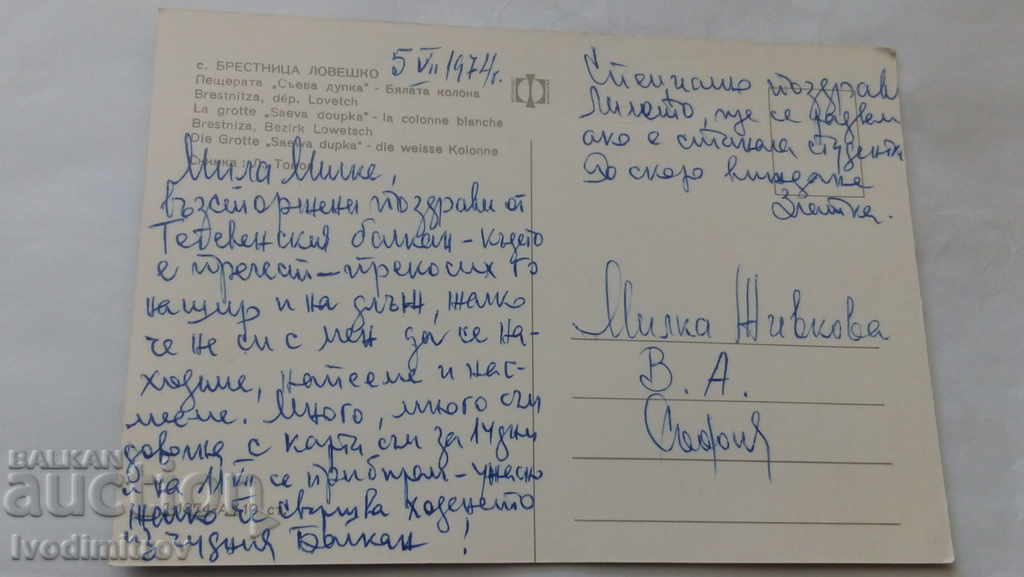 с. БРЕСТНИЦА ЛОВЕШКО
5 VII 1974 г.
Пещерата „Съева дупка" - Бялата колона
Brestnitza, dép. Lovetch
La grotte „Saeva doupka" - la colonne blanche
Brestniza, Bezirk Lowetsch
Die Grotte „Saeva dupka" - die weisse Kolonne
Мила Милке,
възторжени поздрави от
Тетевенския балкан - където
е прелест - прекосих го
нашир и на длъж, жалко
че не си с мен да се на-
ходиме, напееме и нас-
мееме. Много, много съм
доволна с карти съм за 14 дни
и на 11 VII се прибирам - ужасно
жалко че свършва ходенето
из чудния Балкан!
Специално поздрави
Лилето, ще се радвам
ако е станала студентка
До скоро виждане
Златка.
Милка Живкова
В. А.
София
BALKAN
auction
Ivodimitsov